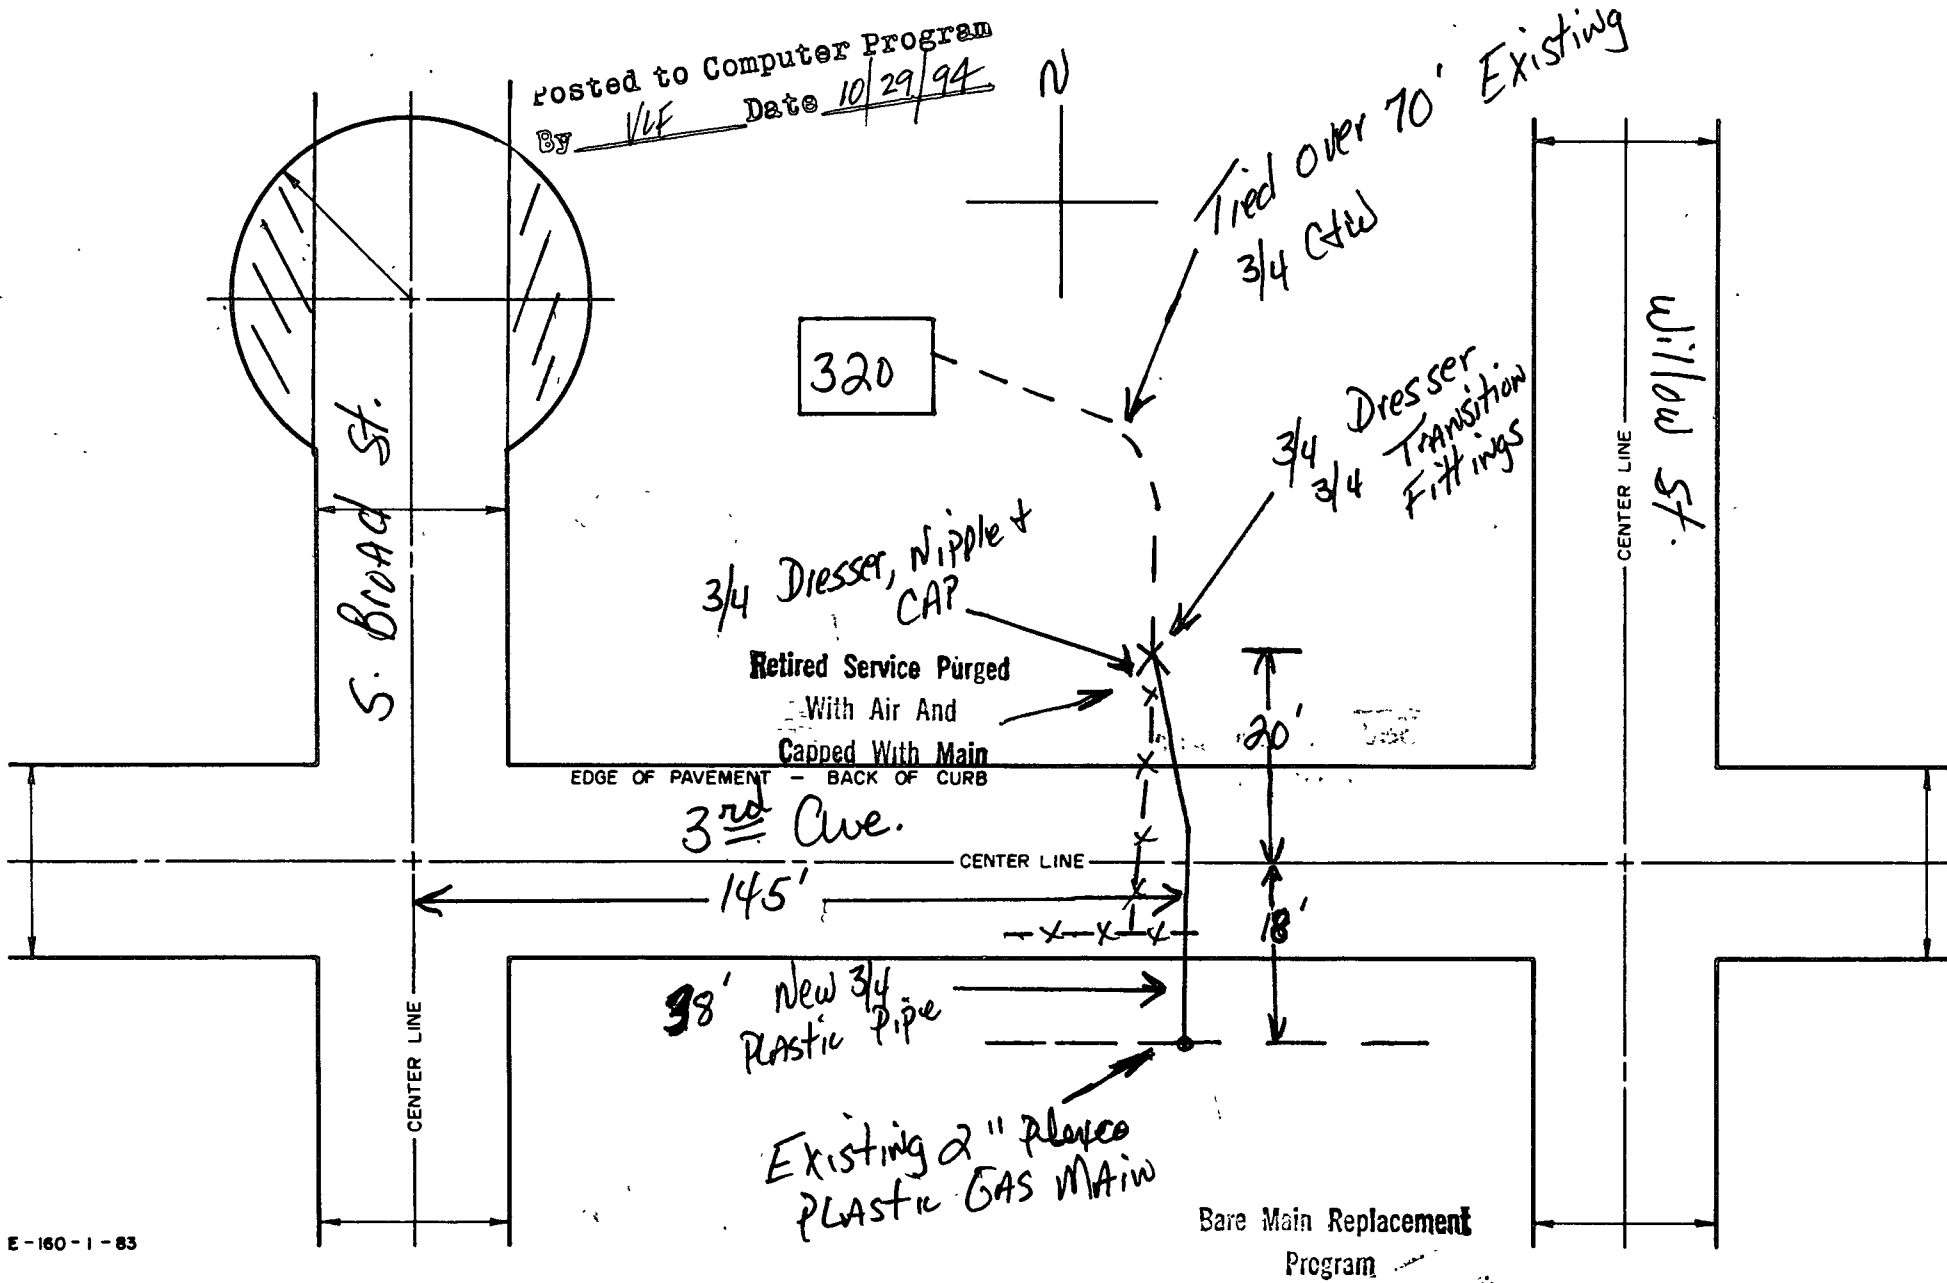 Posted to Computer Program
By VLF Date 10/29/94
N
Tied over 70' Existing
3/4 C+W
320
Willow St.
3/4 Dresser
3/4 Transition
Fittings
CENTER LINE
S. Broad St.
3/4 Dresser, Nipple +
CAP
Retired Service Purged
With Air And
Capped With Main
20'
EDGE OF PAVEMENT - BACK OF CURB
3rd Ave.
CENTER LINE
145'
18'
38' New 3/4
Plastic Pipe
CENTER LINE
Existing 2" Plexco
Plastic GAS MAIN
Bare Main Replacement
Program
E-160-1-83